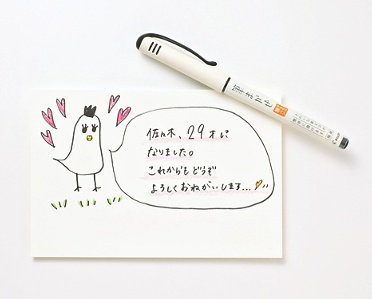 佐々木、29才に
なりました。
これからもどうぞ
よろしくおねがいします...
筆まかせ